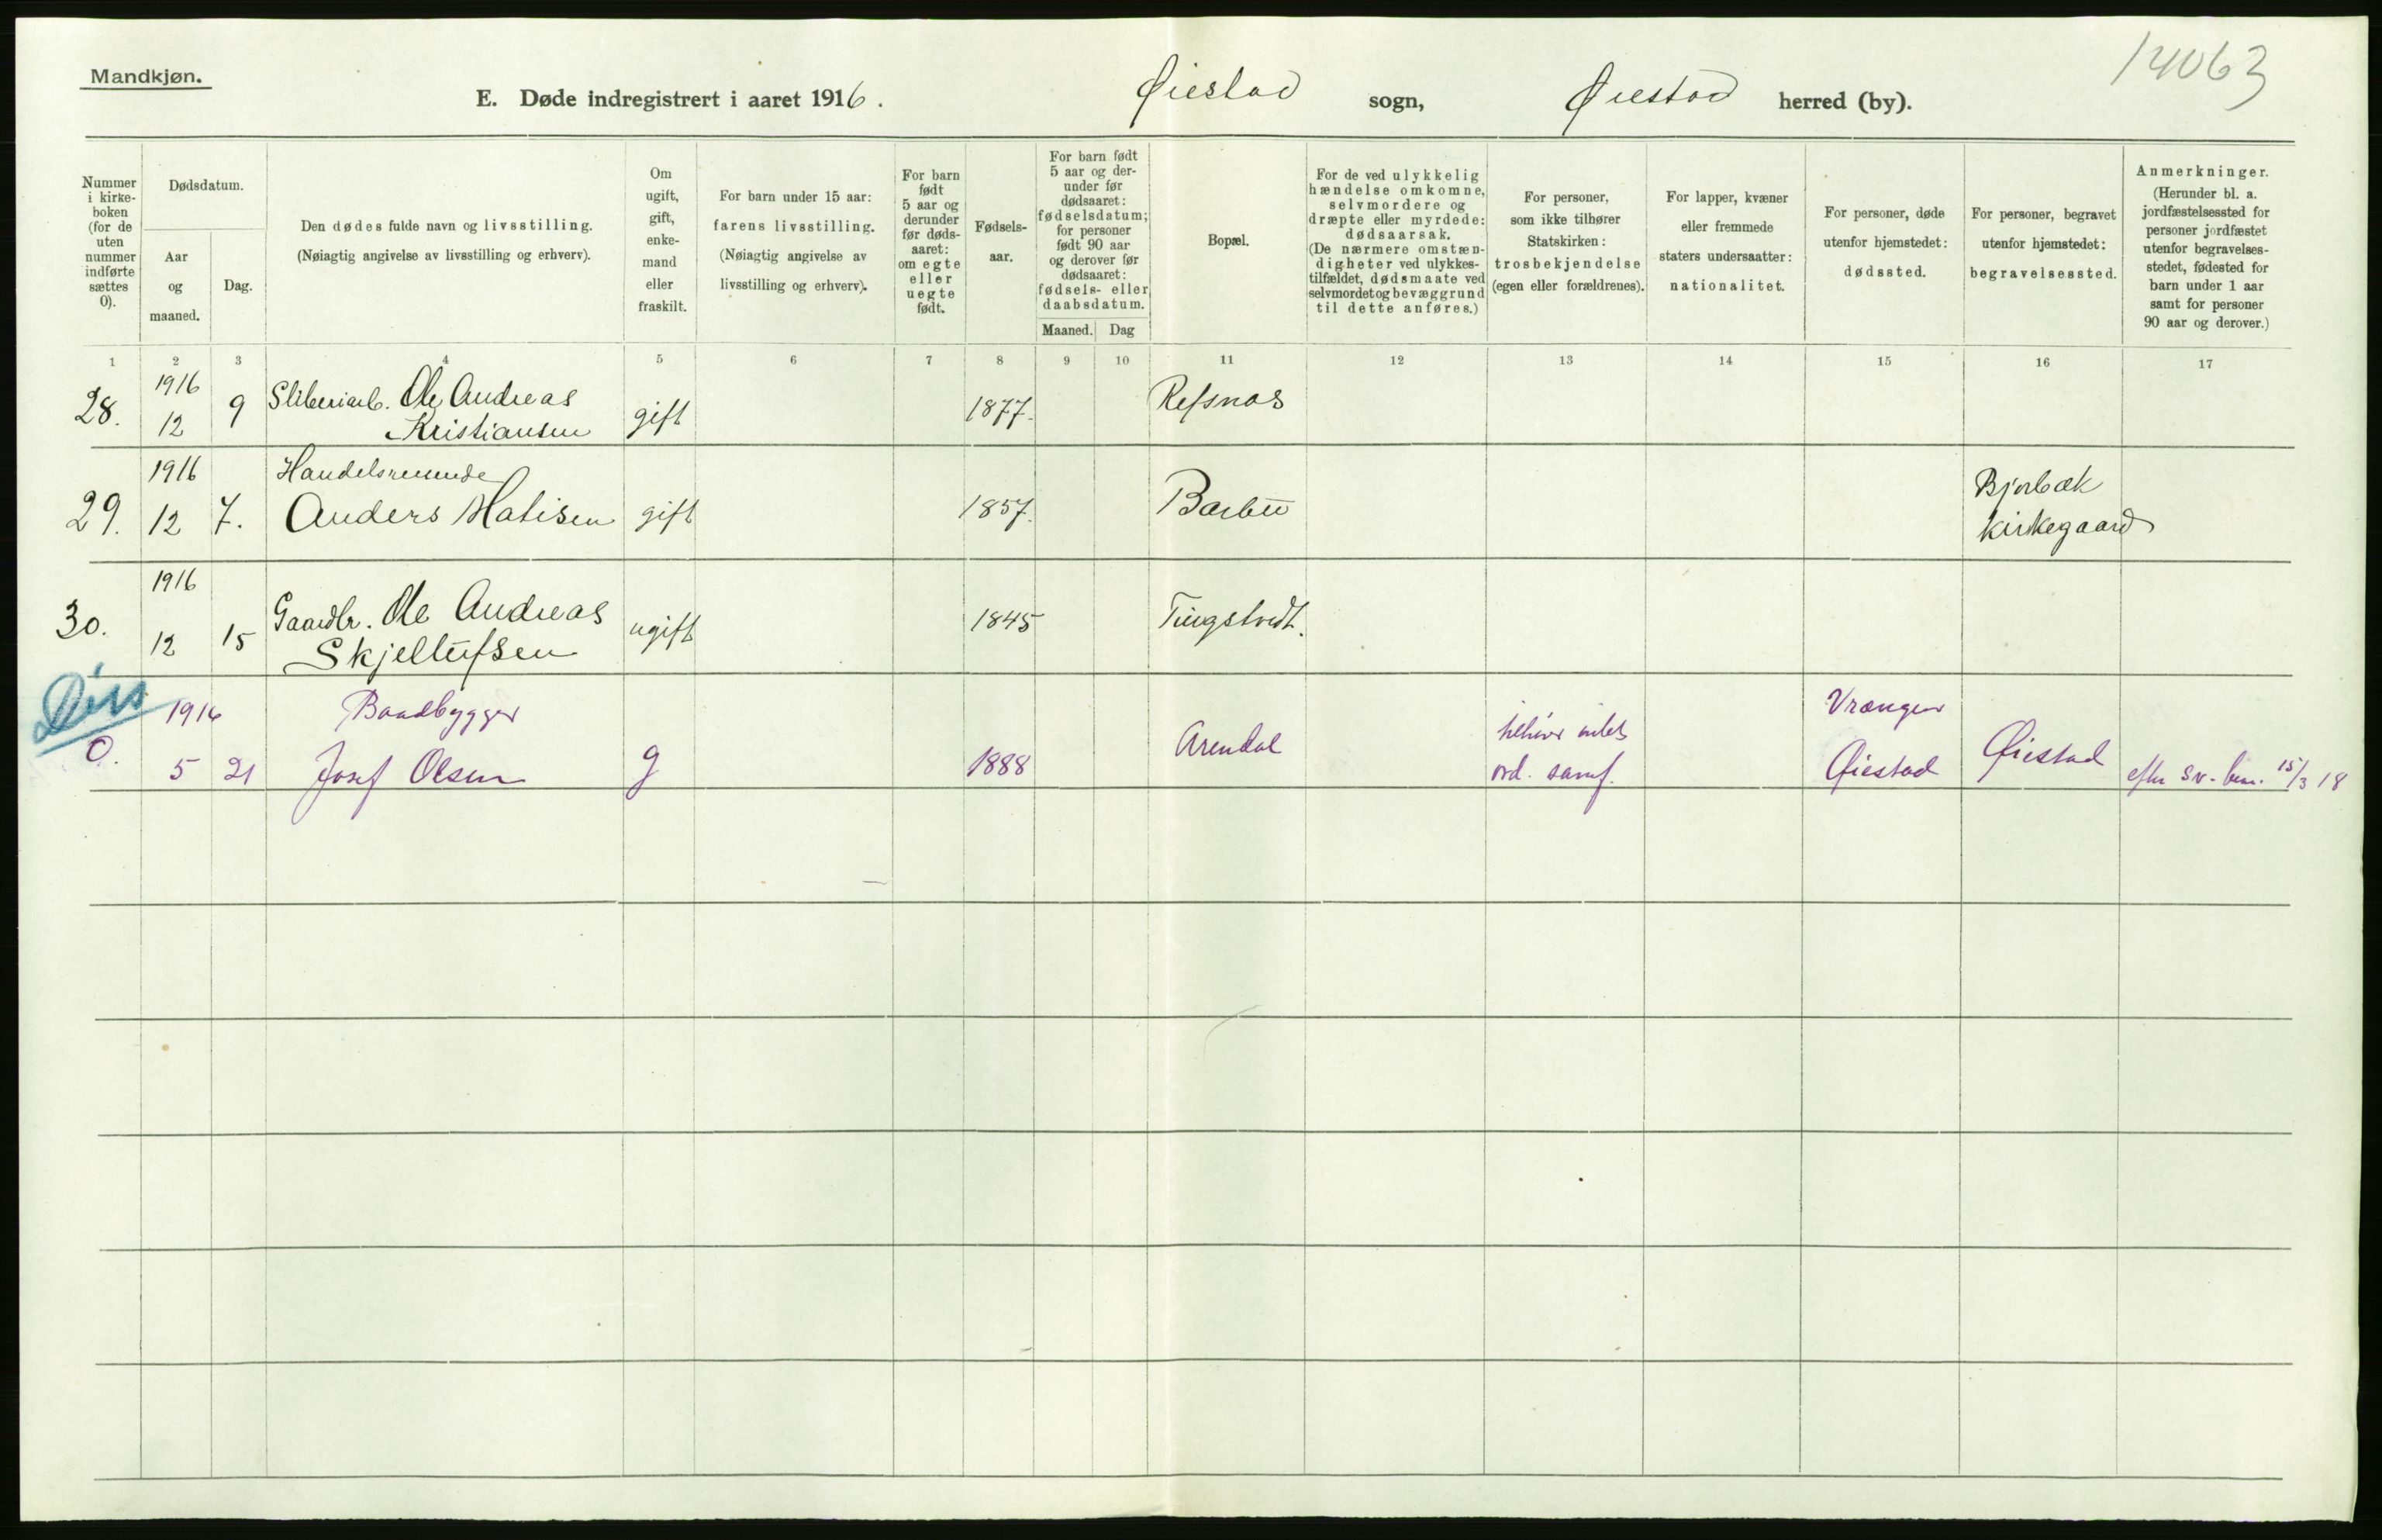 Mandkjøn.
14063
E. Døde indregistrert i aaret 1916. Øiestad sogn, Øiestad herred (by).
Nummer i kirke-boken (for de uten nummer indførte sættes 0).
Dødsdatum.
Aar og maaned.
Dag.
Den dødes fulde navn og livsstilling.
(Nøiagtig angivelse av livsstilling og erhverv).
Om ugift, gift, enke-mand eller fraskilt.
For barn under 15 aar:
farens livsstilling.
(Nøiagtig angivelse av livsstilling og erhverv).
For barn født 5 aar og derunder før døds-aaret: om egte eller uegte født.
Fødsels-aar.
For barn født 5 aar og der-under før dødsaaret: fødselsdatum; for personer født 90 aar og derover før dødsaaret: fødsels- eller daabsdatum.
Maaned. Dag
Bopæl.
For de ved ulykkelig hændelse omkomne, selvmordere og dræpte eller myrdede: dødsaarsak. (De nærmere omstæn-digheter ved ulykkes-tilfældet, dødsmaate ved selvmordet og bevæggrund til dette anføres.)
For personer, som ikke tilhører Statskirken: trosbekjendelse (egen eller forældrenes).
For lapper, kvæner eller fremmede staters undersaatter: nationalitet.
For personer, døde utenfor hjemstedet: dødssted.
For personer, begravet utenfor hjemstedet: begravelsessted.
Anmerkninger.
(Herunder bl. a. jordfæstelsessted for personer jordfæstet utenfor begravelses-stedet, fødested for barn under 1 aar samt for personer 90 aar og derover.)
1 2 3 4 5 6 7 8 9 10 11 12 13 14 15 16 17
28. 1916 12 9 Sliberiarb. Ole Andreas
Kristiansen gift 1877. Refsnæs
29. 1916 12 7. Handelsreisende
Anders Matisen gift 1857. Barbu Bjorbæk
kirkegaard
30. 1916 12 15 Gaardbr. Ole Andreas
Skjellufsen ugift 1845 Tingstvedt.
Diss
0. 1916 5 21 Baadbygger
Josef Olsen g 1888 Arendal tilhører intet
ord. samf. Vrængen
Øiestad Øiestad efter sv. 15/3 18